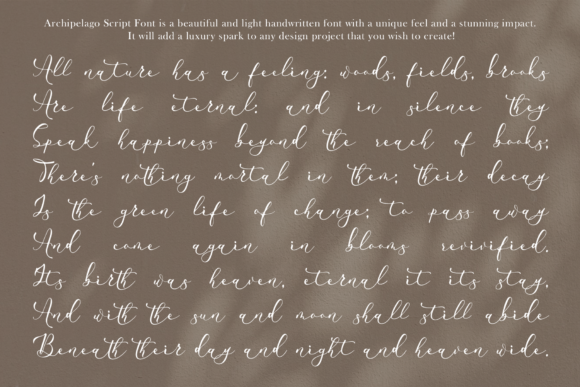 Archipelago Script Font is a beautiful and light handwritten font with a unique feel and a stunning impact.
It will add a luxury spark to any design project that you wish to create!
All nature has a feeling: woods, fields, brooks
Are life eternal: and in silence they
Speak happiness beyond the reach of books;
There's nothing mortal in them; their decay
Is the green life of change; to pass away
And come again in blooms revivified.
Its birth was heaven, eternal it its stay,
And with the sun and moon shall still abide
Beneath their day and night and heaven wide.